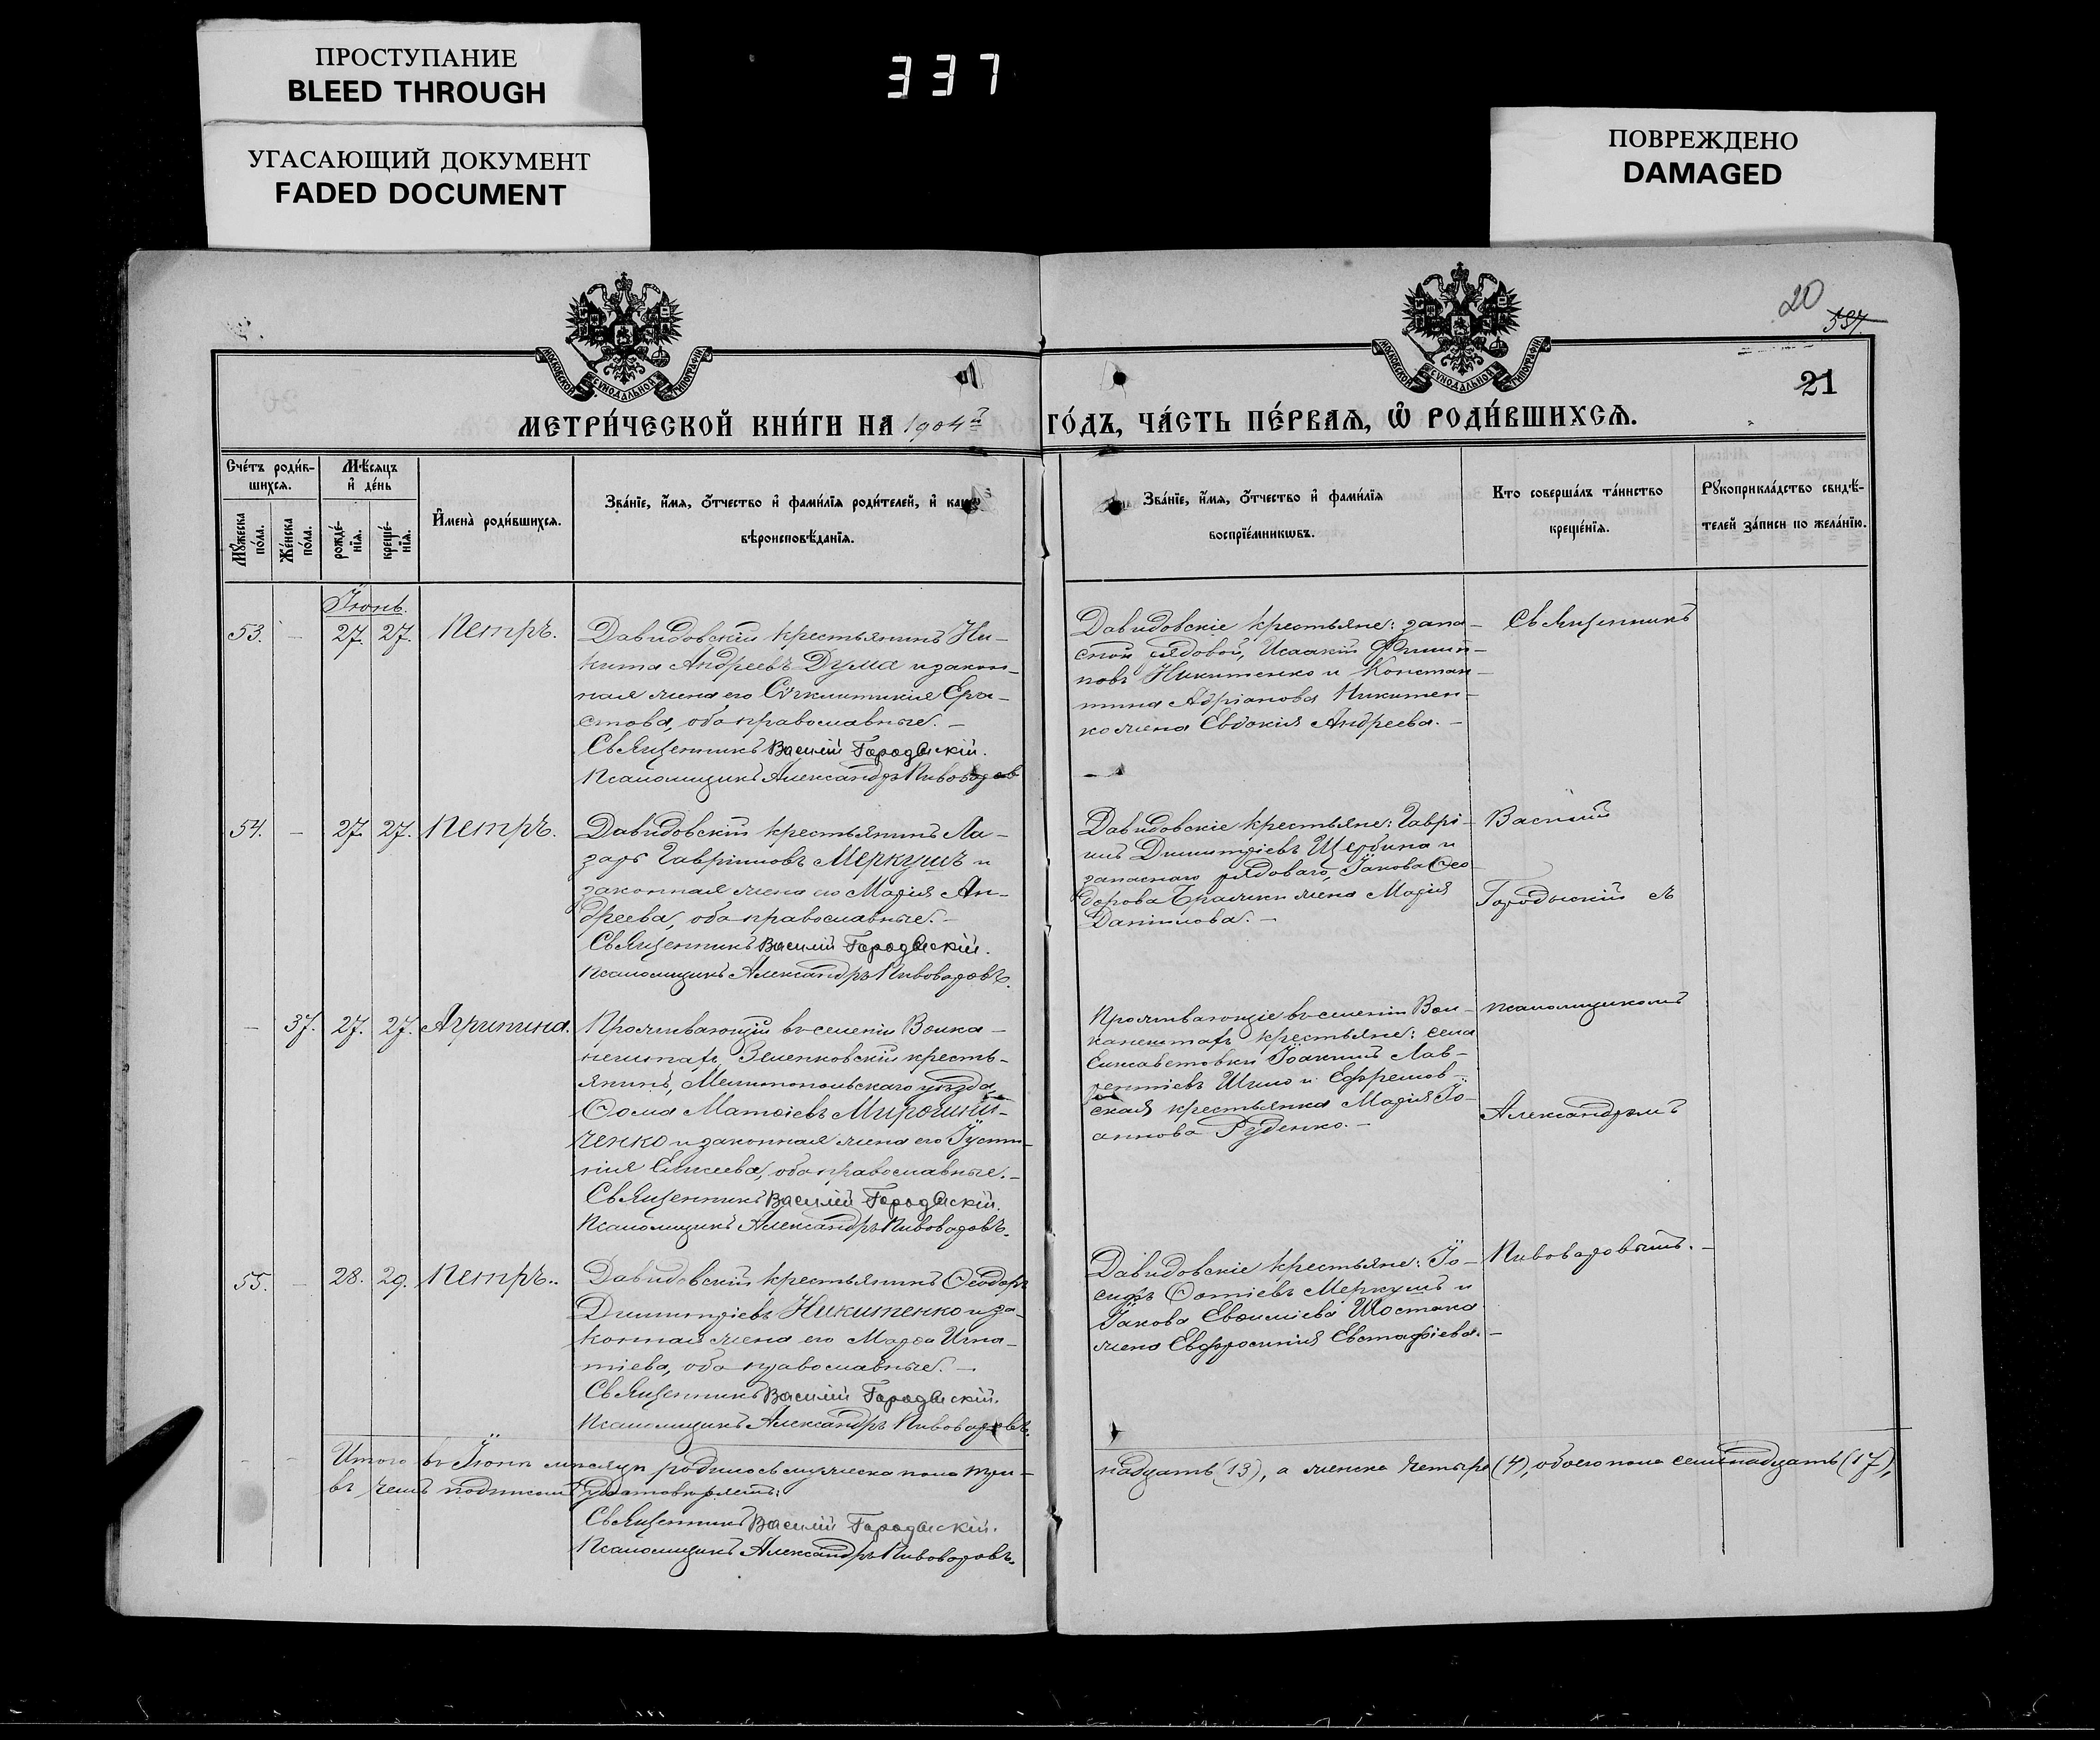 ПРОСТУПАНИЕ
BLEED THROUGH
УГАСАЮЩИЙ ДОКУМЕНТ
FADED DOCUMENT
337
ПОВРЕЖДЕНО
DAMAGED
20
537.
21
МОСКОВСКОЙ СѴНОДАЛЬНОЙ ТИПОГРАФІИ
МОСКОВСКОЙ СѴНОДАЛЬНОЙ ТИПОГРАФІИ
МЕТРИ́ЧЕСКОЙ КНИ́ГИ НА 1904й ГО́ДЪ, ЧА́СТЬ ПЕ́РВАѦ, Ѡ҆ РОДИ́ВШИХСѦ.
Сче́тъ роди́в-
шихся.
Мѣ́сяцъ
и҆ де́нь
Мꙋ́жеска
по́ла.
Же́нска
по́ла.
рожде́-
нїя.
креще́-
нїя.
И҆мена̀ роди́вшихся.
Зва́нїе, и҆́мя, ѻ҆́тчество и҆ фами́лїя роди́телей, и҆ како́гѡ
вѣроисповѣ́данїя.
Зва́нїе, и҆́мя, ѻ҆́тчество и҆ фами́лїя
воспрїе́мникѡвъ.
Кто соверша́лъ та́инство
креще́нїя.
Рꙋкоприкла́дство свидѣ́-
телей за́писи по жела́нїю.
Іюнь.
53. - 27. 27. Петръ.
Давидовскій крестьянинъ Ни-
кита Андреевъ Дума и закон-
ная жена его Сѵнклитикія Ера-
стова, оба православные. -
Священникъ Василій Городыскій.
Псаломщикъ Александръ Пивоваровъ
Давидовскіе крестьяне: запа-
сной рядовой, Исаакій Филип-
повъ Никитенко и Констан-
тина Адріанова Никитен-
ко жена Евдокія Андреева. -
Священникъ
54. - 27. 27. Петръ.
Давидовскій крестьянинъ Ла-
зарь Гавріиловъ Меркушъ и
законная жена его Марія Ан-
дреева, оба православные. -
Священникъ Василій Городыскій.
Псаломщикъ Александръ Пивоваровъ.
Давидовскіе крестьяне: Гаврі-
илъ Димитріевъ Щербина и
запаснаго рядоваго, Іакова Ѳео-
дорова жена Марія
Даніилова. -
Василій
Городыскій съ
- 37. 27. 27. Агрипина.
Проживающій въ селеніи Волка-
нешталъ, Зеленковскій кресть-
янинъ, Мелитопольскаго уѣзда,
Ѳома Матѳіевъ Мирошни-
ченко и законная жена его Іусти-
нія Елисеева, оба православные. -
Священникъ Василій Городыскій.
Псаломщикъ Александръ Пивоваровъ.
Проживающіе въ селеніи Вол-
канешталъ крестьяне: села
Елисаветовки Іоакимъ Лав-
рентіевъ Шило и Ефремов-
ская крестьянка Марія Іо-
аннова Руденко. -
псаломщикомъ
Александромъ
55. - 28. 29. Петръ.
Давидовскій крестьянинъ Ѳеодоръ
Димитріевъ Никитенко и за-
конная жена его Марѳа Игна-
тіева, оба православные. -
Священникъ Василій Городыскій.
Псаломщикъ Александръ Пивоваровъ.
Давидовскіе крестьяне: Іо-
сифъ Ѳотіевъ Меркушъ и
Іакова Евѳиміева Шостака
жена Евфросинія Евстафіева. -
Пивоваровымъ. -
Итого въ Іюнѣ мѣсяцѣ родилось мужеска пола три-
надцать (13), а женска четыре (4), обоего пола семнадцать (17),
въ чемъ подписомъ удостовѣряемъ:
Священникъ Василій Городыскій.
Псаломщикъ Александръ Пивоваровъ.